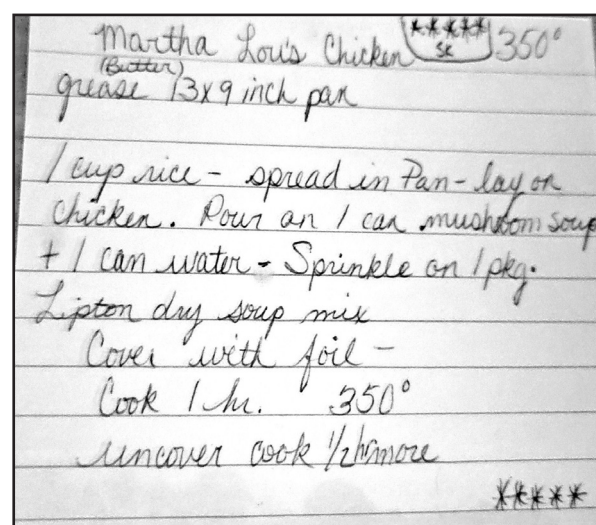 Martha Lou's Chicken ***** SK 350°
(Butter)
grease 13x9 inch pan
1 cup rice - spread in Pan - lay on
chicken. Pour on 1 can mushroom soup
+ 1 can water - Sprinkle on 1 pkg.
Lipton dry soup mix
Cover with foil -
Cook 1 hr. 350°
uncover cook 1/2 hr more
*****